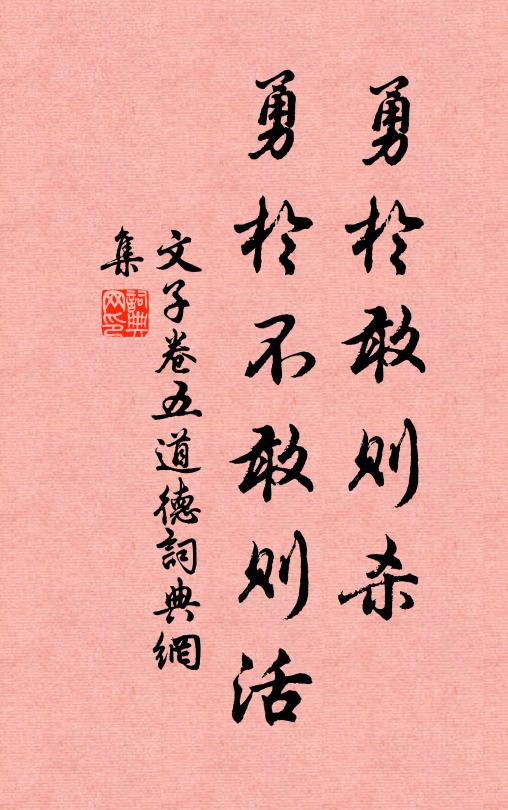 勇於敢则杀
勇於不敢则活
文子卷五道德詞典網
集
詞典网印